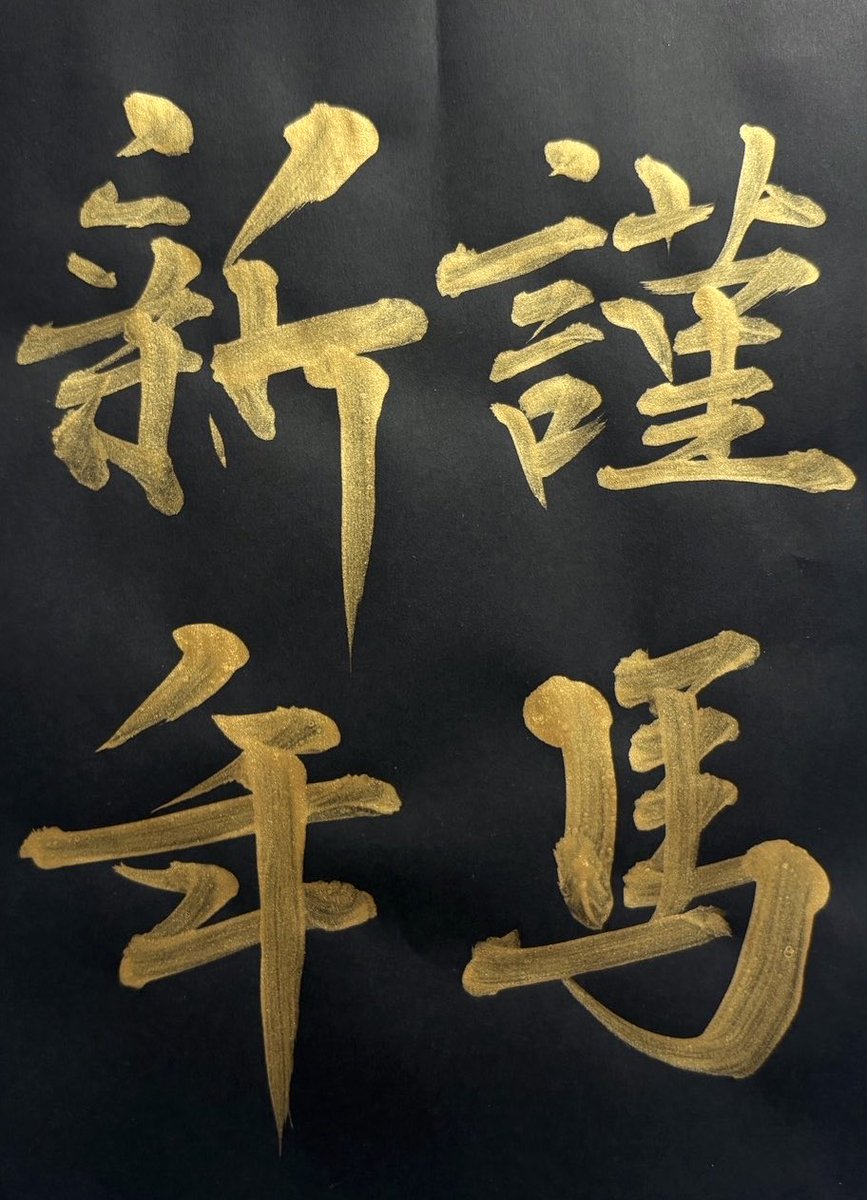 謹馬
新年